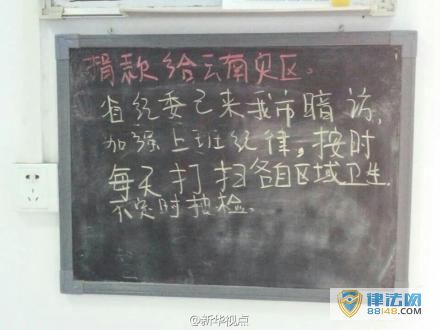 捐款给云南灾区。
省纪委已来我市暗访,
加强上班纪律,按时
每天打扫各自区域卫生.
不实时抽检。
@新华视点
律法网
88148.com